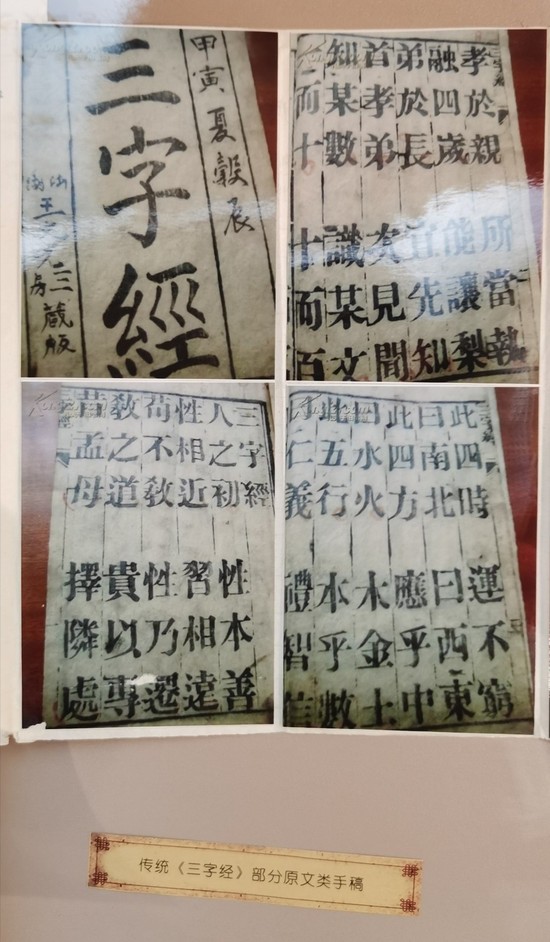 甲寅夏穀辰
三字經
藏版
孝於親 所當執
融四歲 能讓梨
弟於長 宜先知
首孝弟 次見聞
知某數 識某文
一而十 十而百
三字經
人之初 性本善
性相近 習相遠
苟不教 性乃遷
教之道 貴以專
昔孟母 擇隣處
此四時 運不窮
曰南北 曰西東
此四方 應乎中
曰水火 木金土
此五行 本乎數
曰仁義 禮智信
传统《三字经》部分原文类手稿